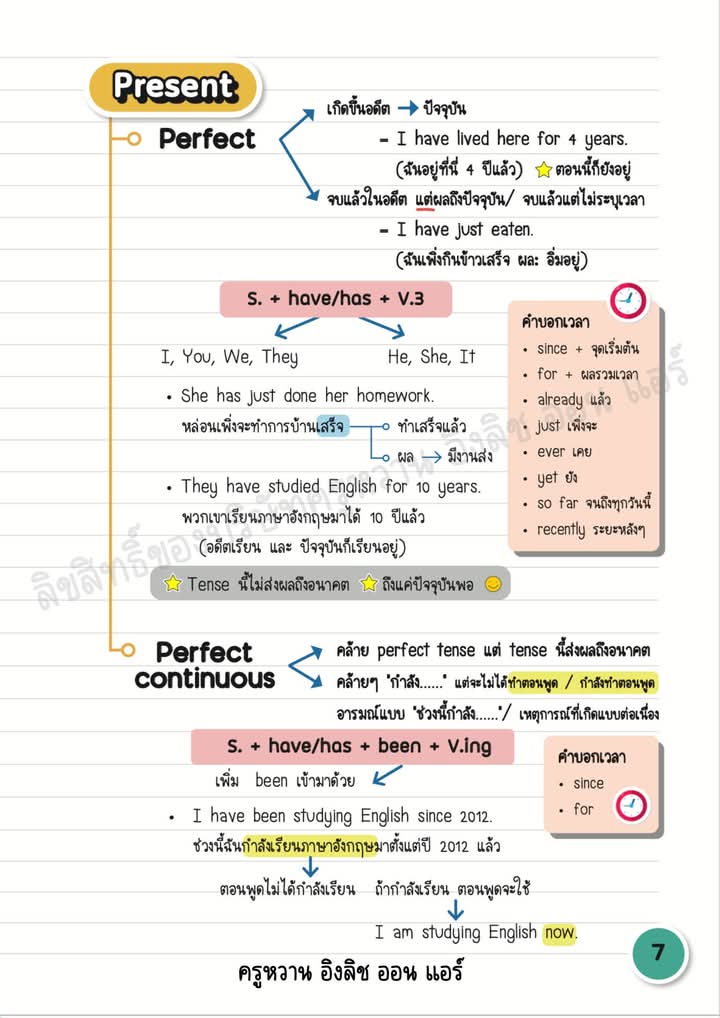 Present
Perfect
เกิดขึ้นอดีต → ปัจจุบัน
- I have lived here for 4 years.
(ฉันอยู่ที่นี่ 4 ปีแล้ว) ⭐ ตอนนี้ก็ยังอยู่
จบแล้วในอดีต แต่ผลถึงปัจจุบัน/ จบแล้วแต่ไม่ระบุเวลา
- I have just eaten.
(ฉันเพิ่งกินข้าวเสร็จ ผล: อิ่มอยู่)
S. + have/has + V.3
I, You, We, They
He, She, It
• She has just done her homework.
หล่อนเพิ่งจะทำการบ้านเสร็จ
ทำเสร็จแล้ว
ผล → มีงานส่ง
• They have studied English for 10 years.
พวกเขาเรียนภาษาอังกฤษมาได้ 10 ปีแล้ว
(อดีตเรียน และ ปัจจุบันก็เรียนอยู่)
คำบอกเวลา
• since + จุดเริ่มต้น
• for + ผลรวมเวลา
• already แล้ว
• just เพิ่งจะ
• ever เคย
• yet ยัง
• so far จนถึงทุกวันนี้
• recently ระยะหลังๆ
⭐ Tense นี้ไม่ส่งผลถึงอนาคต ⭐ ถึงแค่ปัจจุบันพอ 🙂
ลิขสิทธิ์ของบริษัทครูหวาน อิงลิช ออน แอร์
Perfect
continuous
คล้าย perfect tense แต่ tense นี้ส่งผลถึงอนาคต
คล้ายๆ "กำลัง......" แต่จะไม่ได้ทำตอนพูด / กำลังทำตอนพูด
อารมณ์แบบ "ช่วงนี้กำลัง......"/ เหตุการณ์ที่เกิดแบบต่อเนื่อง
S. + have/has + been + V.ing
เพิ่ม been เข้ามาด้วย
คำบอกเวลา
• since
• for
• I have been studying English since 2012.
ช่วงนี้ฉันกำลังเรียนภาษาอังกฤษมาตั้งแต่ปี 2012 แล้ว
ตอนพูดไม่ได้กำลังเรียน
ถ้ากำลังเรียน ตอนพูดจะใช้
I am studying English now.
7
ครูหวาน อิงลิช ออน แอร์